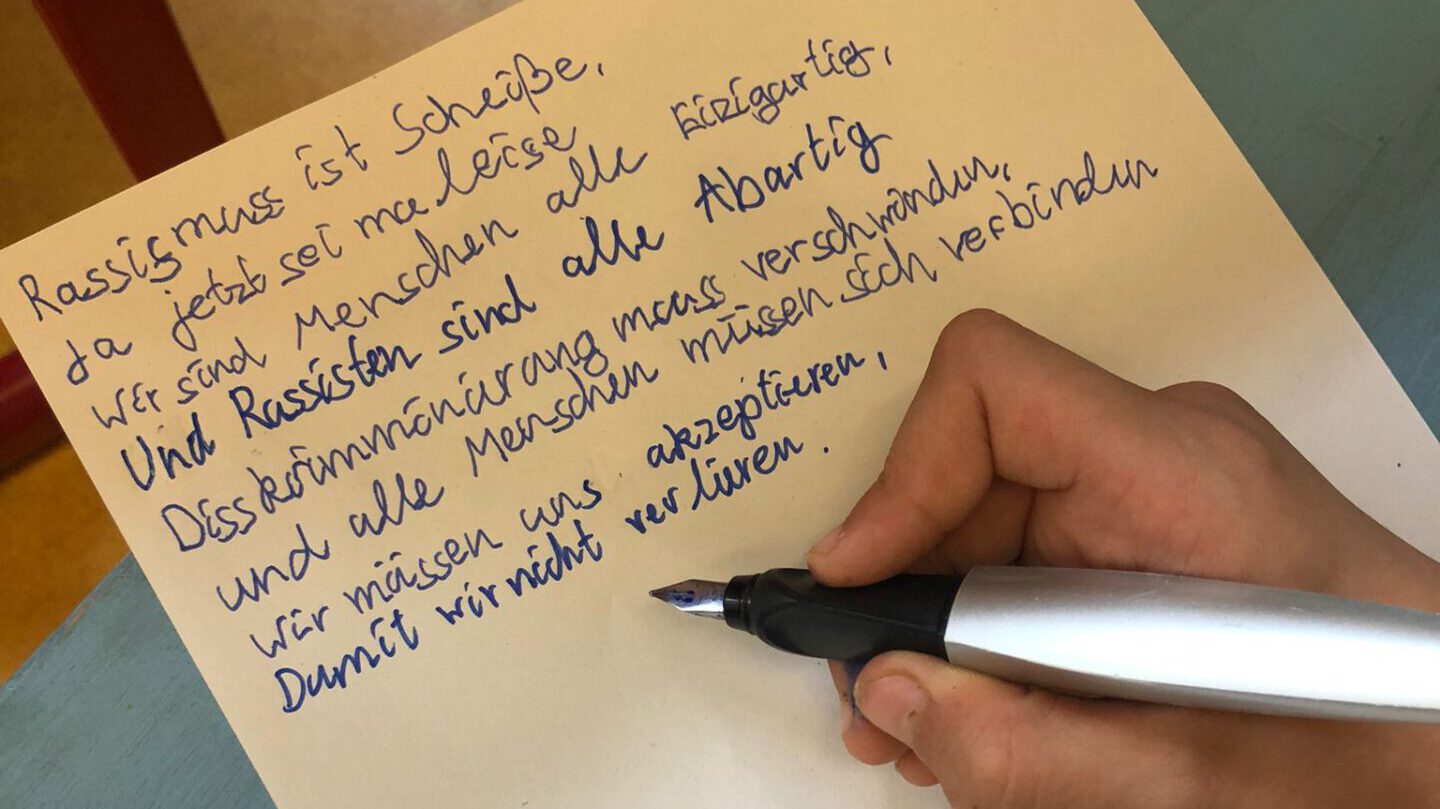 Rassismuss ist Scheiße,
Ja jetzt sei ma leise
wir sind Menschen alle Einzigartig,
Und Rassisten sind alle Abartig
Disskrimminirung muss verschwinden,
und alle Menschen müssen sich verbinden
wir müssen uns akzeptieren,
Damit wir nicht verliren.